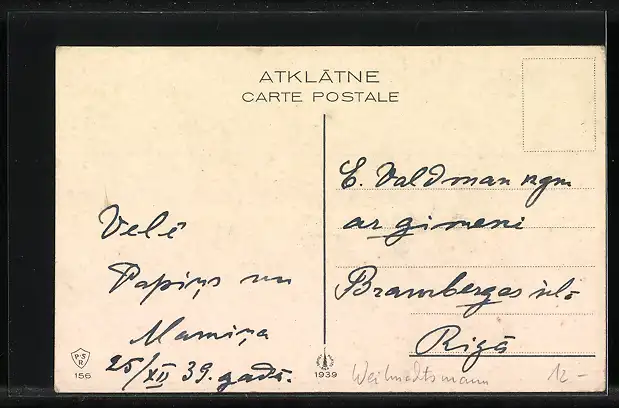 ATKLĀTNE
CARTE POSTALE
Velē
Papiņs un
Mamiņa
25/XII 39. gadā.
E. Valdman kgm
ar gimeni
Bramberges iel.
Rīgā
P.S.R
156
1939
Weihnachtsmann 12-